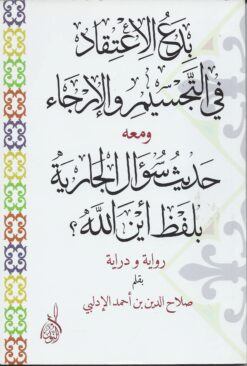 بِدَعُ الاِعْتِقَادِ
في التَّجْسِيْمِ والإرجاء
ومعه
حَدِيثُ سُؤَالِ الجَارِيَةِ
بِلَفْظِ أَيْنَ اللهُ؟
رواية و دراية
بقلم
صلاح الدين بن أحمد الإدلبي